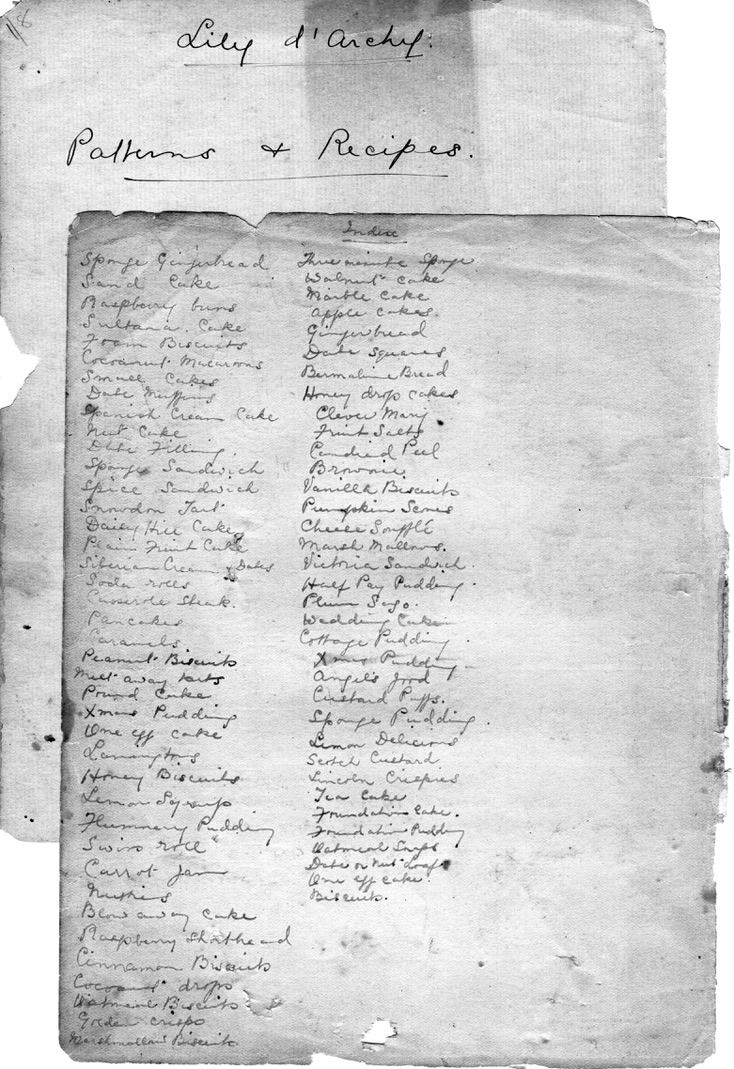 118
Lily d'Archy.
Patterns & Recipes.
Index
Sponge Gingerbread
Sand Cake
Raspberry buns
Sultana Cake
Foam Biscuits
Cocoanut Macaroons
Small Cakes
Date Muffins
Spanish Cream Cake
Nut Cake
Date Filling.
Sponge Sandwich
Spice Sandwich
Snowdon Tart
Daisy Hill Cake
Plain Fruit Cake
Siberian Cream & Dates
Soda rolls
Casserole Steak.
Pancakes
Caramels
Peanut Biscuits
Melt away tarts
Pound Cake
Xmas Pudding
One egg cake
Lamingtons
Honey Biscuits
Lemon Syrup
Flummery Pudding
Swiss roll
Carrot Jam
Nutties
Blow away Cake
Raspberry Shortbread
Cinnamon Biscuits
Cocoanut drops
Oatmeal Biscuits
Golden crisps
Marshmallow Biscuits.
Three minute Sponge
Walnut cake
Marble Cake
Apple cakes.
Gingerbread
Date squares
Bermaline Bread
Honey drop cakes
Clever Mary
Fruit Salts
Candied Peel
Brownie
Vanilla Biscuits
Pumpkin Scones
Cheese Soufflé
Marsh Mallows.
Victoria Sandwich.
Half Pay Pudding.
Plum Sago.
Wedding Cake
Cottage Pudding.
Xmas Pudding
Angel's food
Custard Puffs.
Sponge Pudding.
Lemon Delicious
Scotch Custard
Lincoln Crispies
Tea Cake
Foundation Cake.
Foundation Pudding
Oatmeal Snaps
Date or Nut Loaf
One egg cake.
Biscuits.